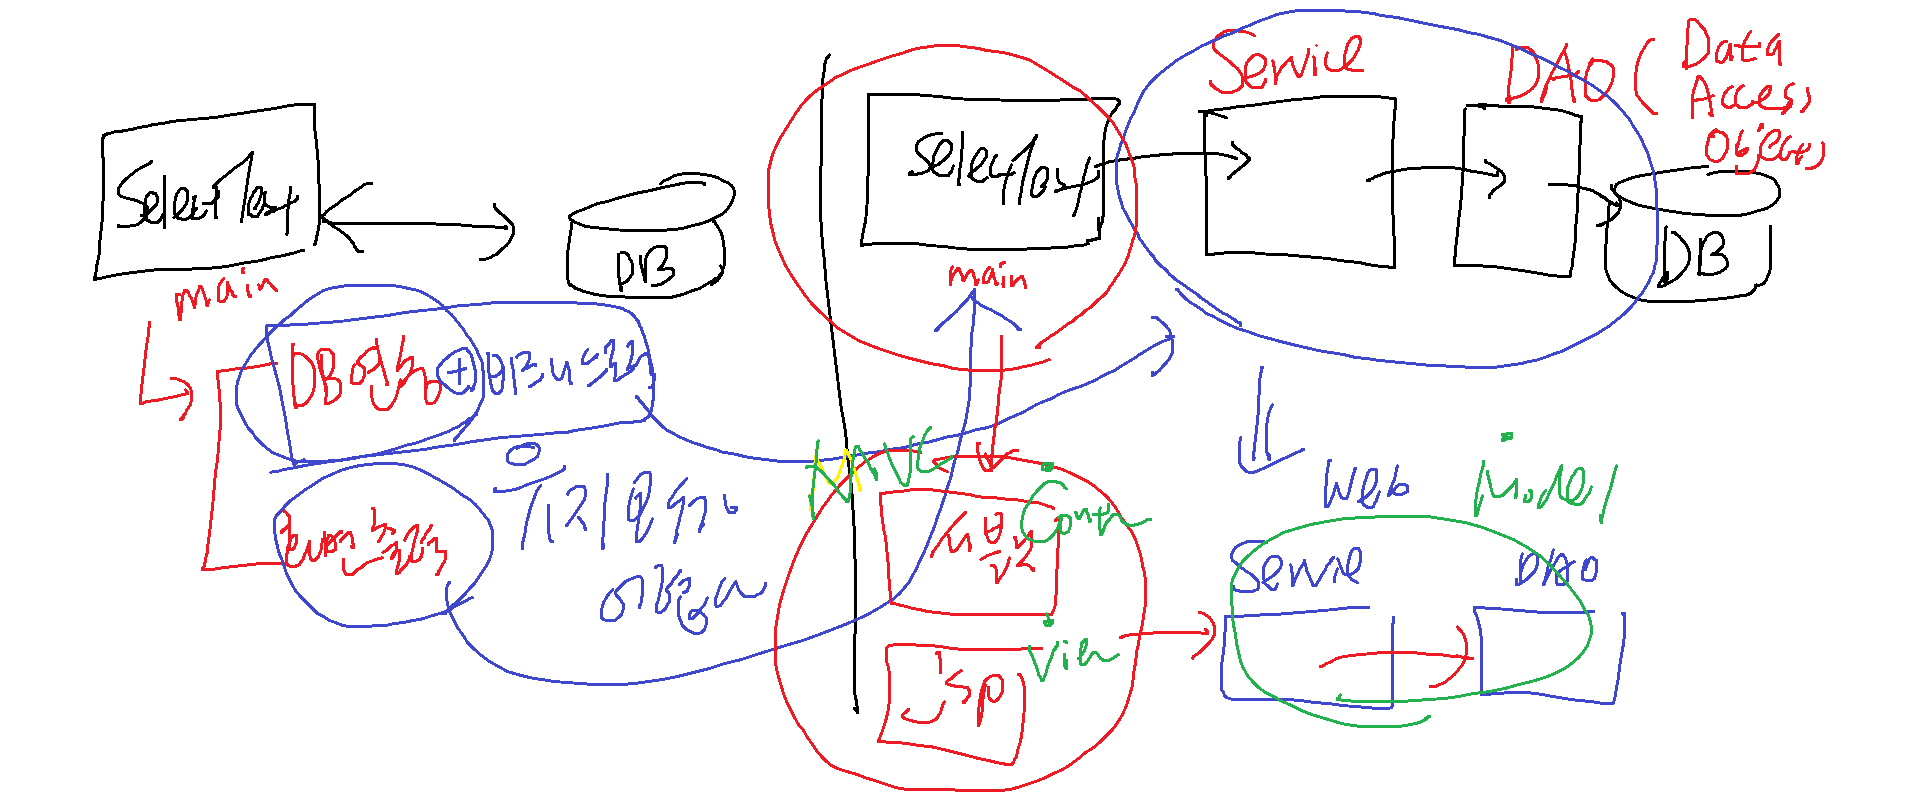 SelectTest
main
DB
DB연동 + 비즈니스로직
화면출력
유지보수가
어렵다
SelectTest
main
Service
DAO ( Data
Access
Object)
DB
MVC
서블릿
Contr
jsp
View
Web
Model
Service
DAO